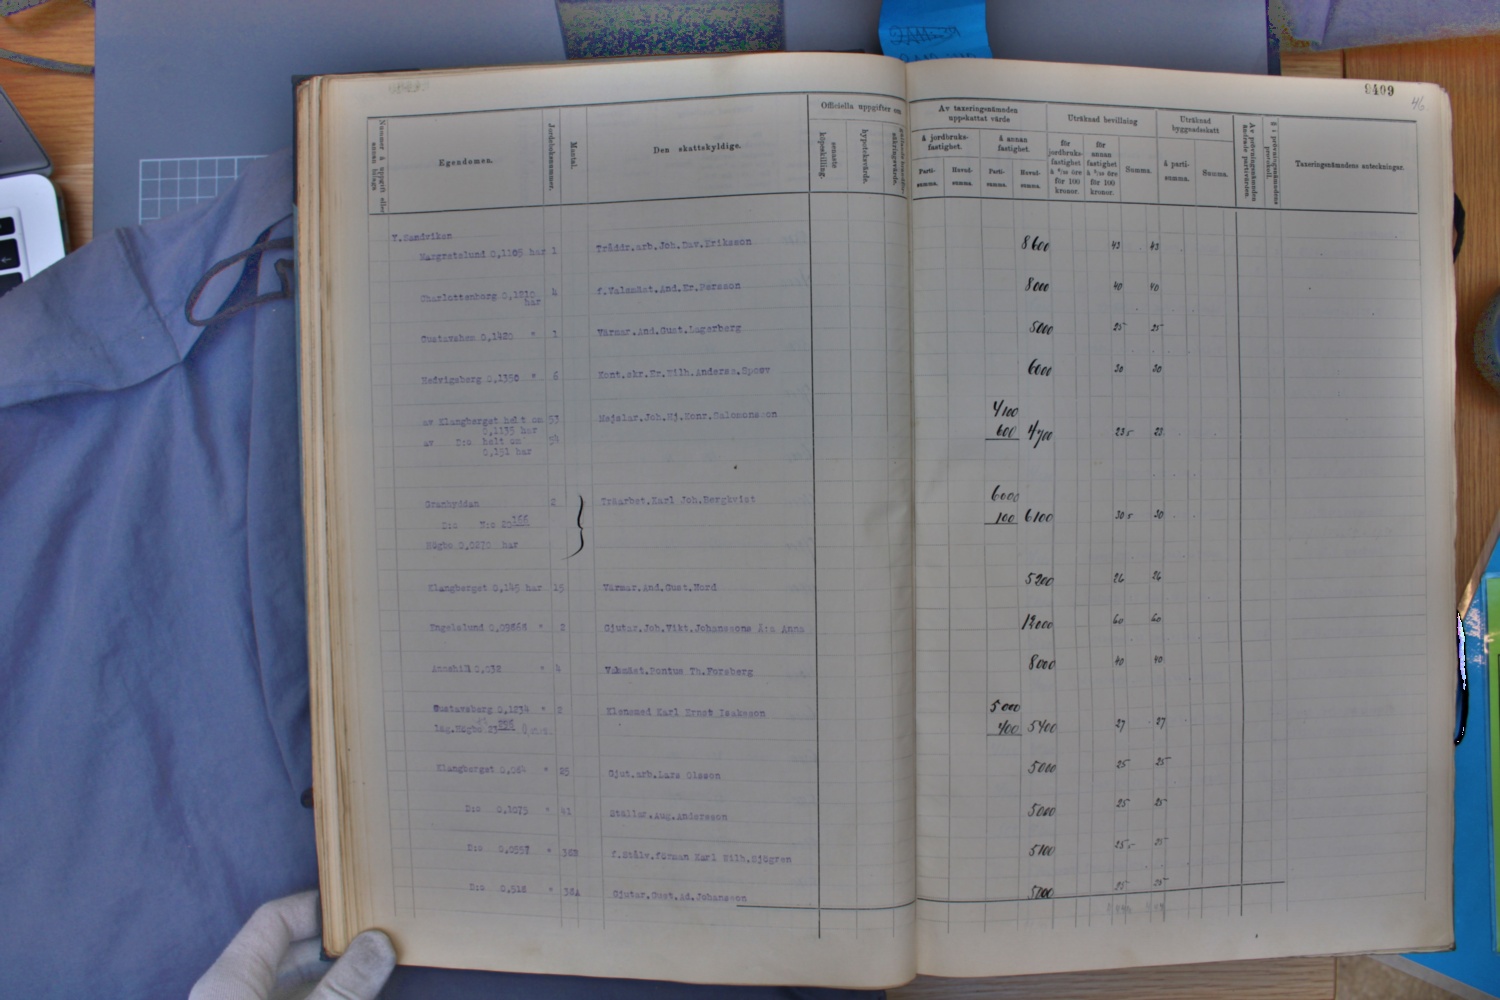 9409
46.
Nummer å uppgift eller annan bilaga
Egendomen.
Jordeboksnummer.
Mantal.
Den skattskyldige.
Officiella uppgifter om
senaste köpeskilling.
hypoteksvärde.
Av taxeringsnämnden uppskattat värde
å jordbruksfastighet.
å annan fastighet.
Partisumma.
Huvudsumma.
Partisumma.
Huvudsumma.
Uträknad bevillning
för jordbruksfastighet
för annan fastighet
för 100 kronor.
för 100 kronor.
Summa.
Uträknad byggnadsskatt
å partisumma.
Summa.
Taxeringsnämndens anteckningar.
Y.Sandviken
Margretelund 0,1105 har 1 Tråddr.arb.Joh.Dav.Eriksson 8600 43 43
Charlottenborg 0,1210 har 4 f.Valsmäst.And.Er.Persson 8000 40 40
Gustavshem 0,1420 " 1 Värmar.And.Gust.Lagerberg 5000 25 25
Hedvigsberg 0,1350 " 6 Kont.skr.Er.Wilh.Anderss. 6000 30 30
av Klangberget helt om 53 Majslar.Joh.Hj.Konr.Salomonsson 4100
0,1135 har
av D:o helt om 54 600 4700 23 5 23
0,151 har
Granhyddan 2 Träarbet.Karl Joh.Bergkvist 6000
D:o N:o 100 6100 30 5 30
Högbo 0,0270 har
Klangberget 0,145 har 15 Värmar.And.Gust.Nord 5200 26 26
Engelslund 0,09864 " 2 Gjutar.Joh.Vikt.Johanssons Ä:a Anna 12000 60 60
0,032 " 4 Valsmäst.Pontus Th.Forsberg 8000 40 40
Gustavsberg 0,1234 " 2 Klensmed Karl Ernst Isaksson 5000
400 5400 27 27
Klangberget 0,064 " 25 Gjut.arb.Lars Olsson 5000 25 25
D:o 0,1075 " 41 Stallar.Aug.Andersson 5000 25 25
D:o 0,0557 " 36B f.Stålv.förman Karl Wilh.Sjögren 5100 25 25
D:o 0,518 " 36A Gjutar.Gust.Ad.Johansson 5000 25 25